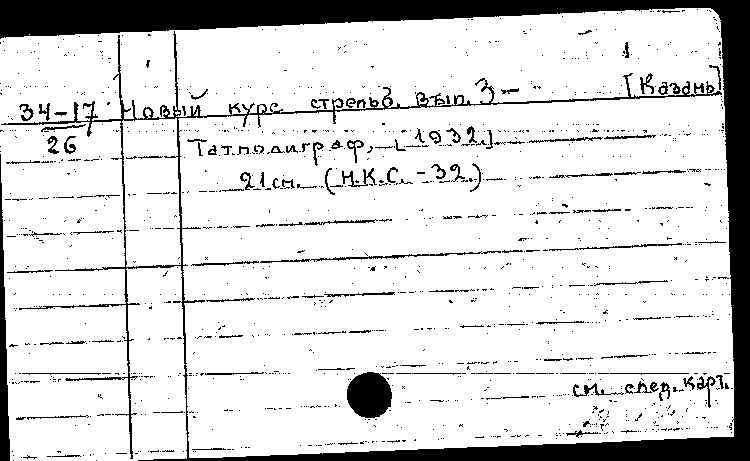 34-17 Новый курс стрельб. Вып. 3- [Казань]
26
Татполиграф, [1932.]
21см. (Н.К.С. - 32.)
см. след. карт.